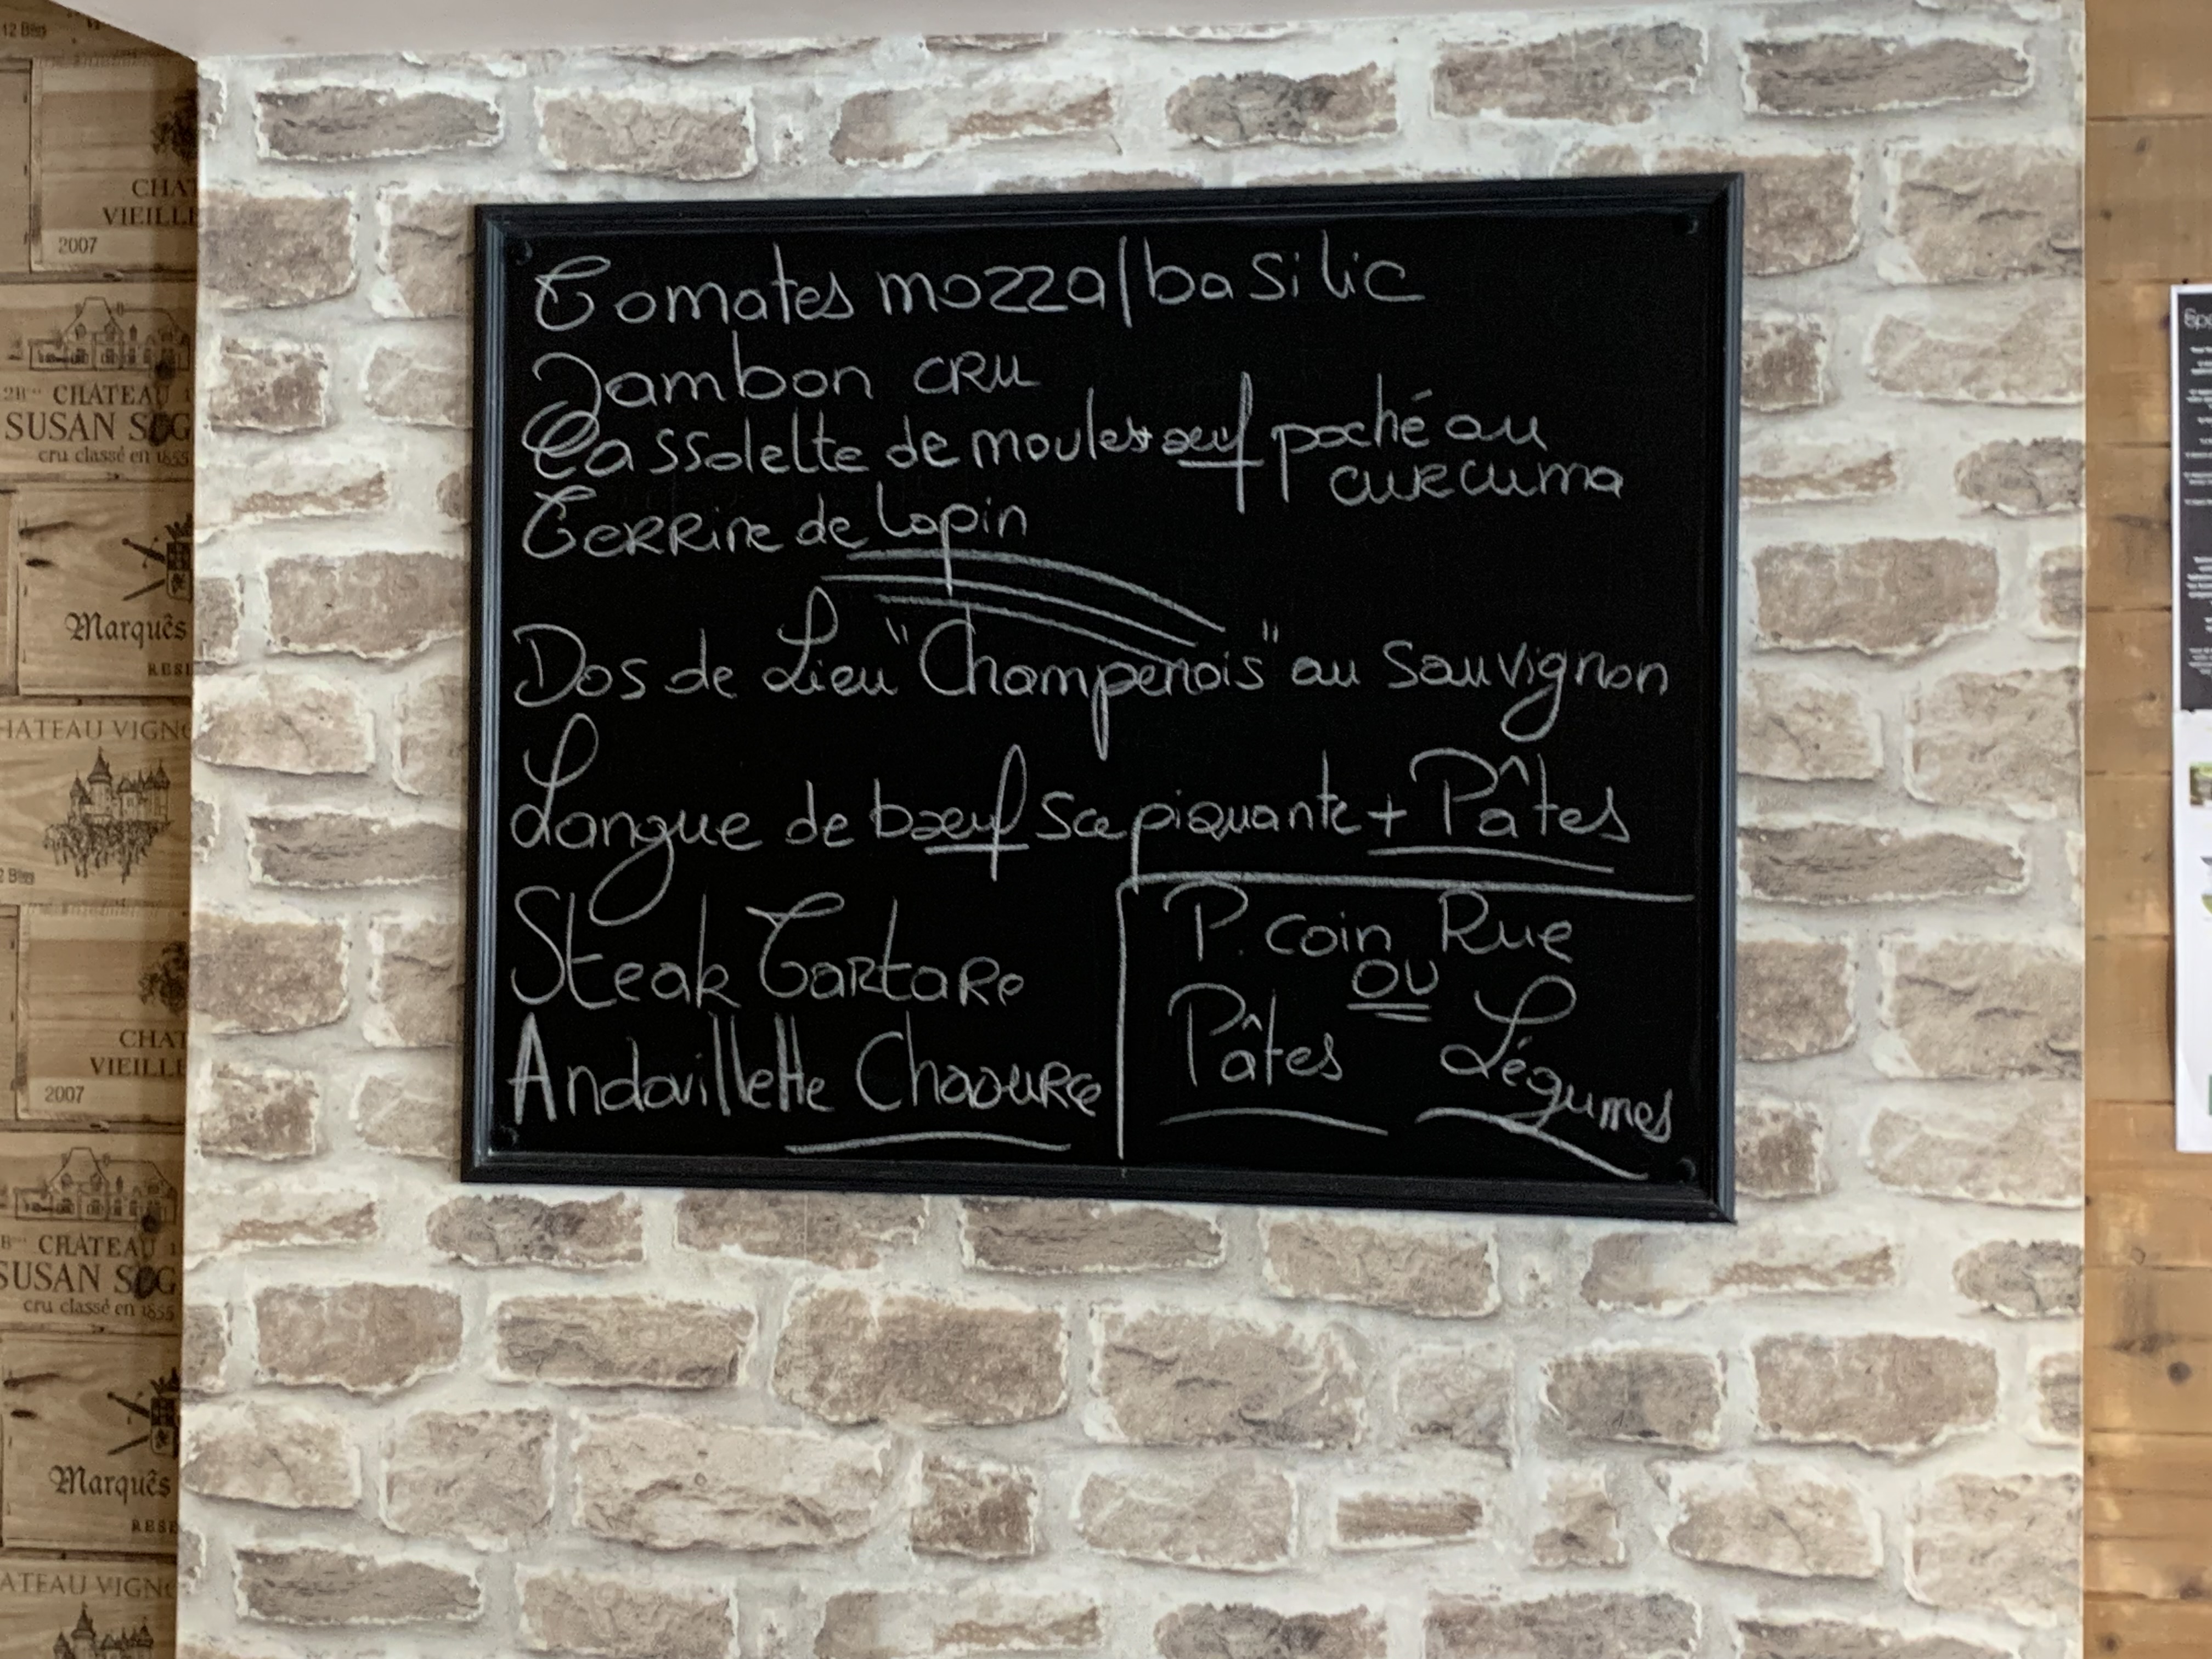 Tomates mozza/basilic
Jambon CRU
Cassolette de moules+oeuf poché au
curcuma
Terrine de Lapin
Dos de Lieu "Champenois" au Sauvignon
Langue de bœuf Sce piquante + Pâtes
Steak Tartare
Andouillette Chaource
P. coin Rue
OU
Pâtes Légumes
12 Btes
CHAT
VIEILLE
2007
CHATEAU
SUSAN
cru classé en 1855
Marquês
RESE
HATEAU VIGNO
CHAT
VIEILLE
2007
CHATEAU
SUSAN
cru classé en 1855
Marquês
RESE
ATEAU VIGN